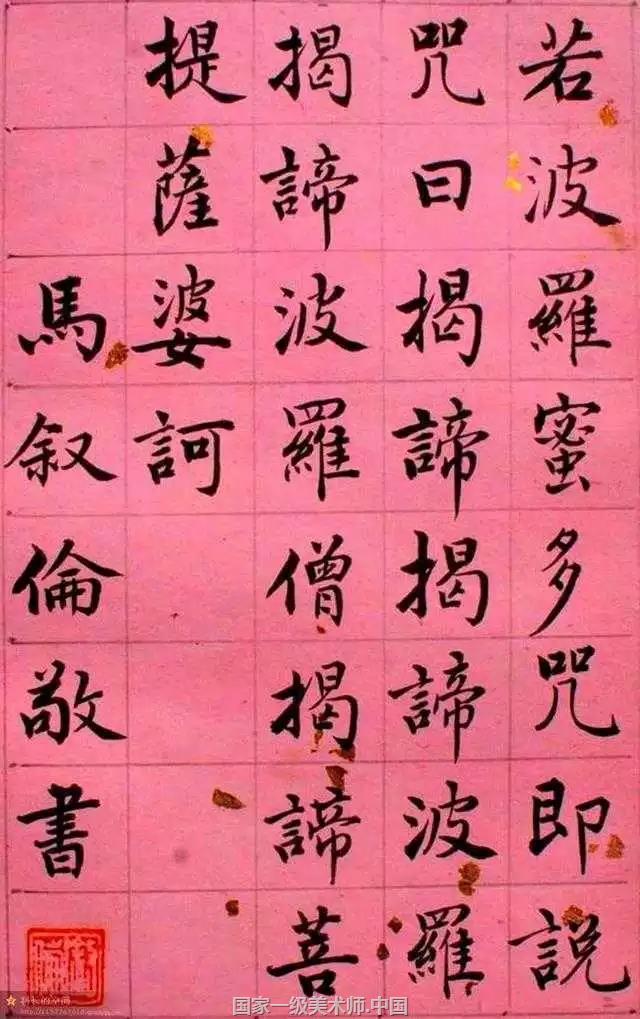 若波羅蜜多咒即説
咒曰揭諦揭諦波羅
揭諦波羅僧揭諦菩
提薩婆訶
馬叙倫敬書
国家一级美术师.中国